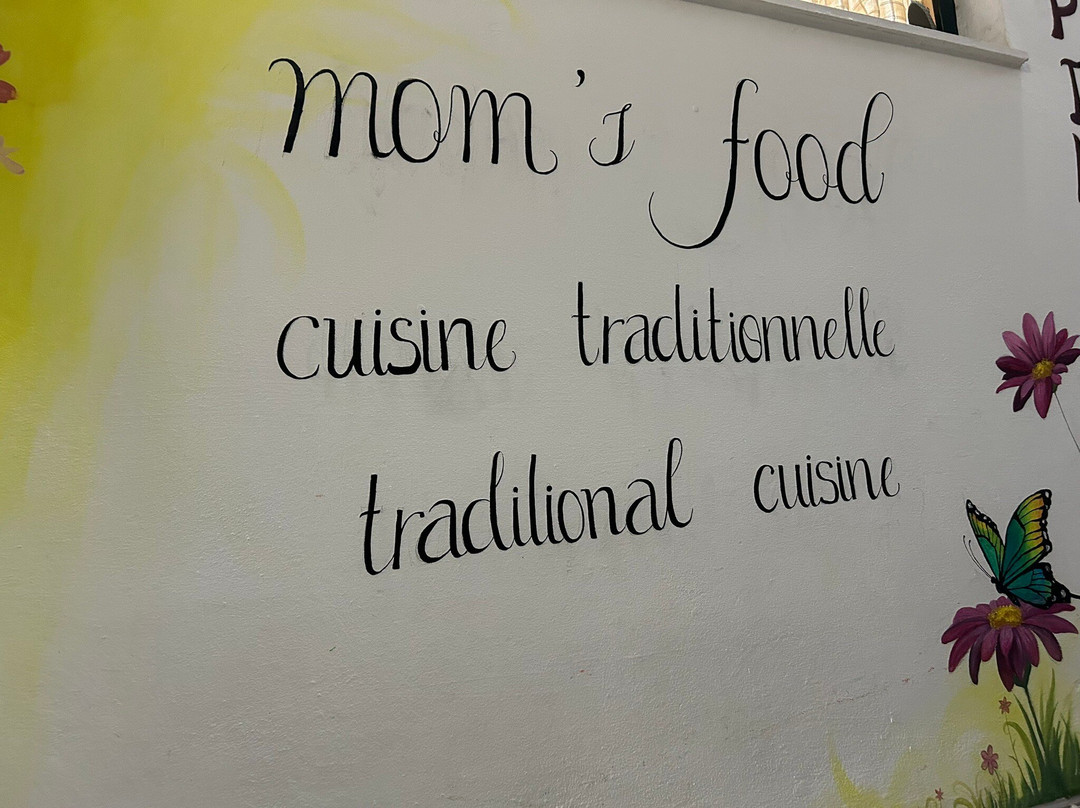 mom's food
cuisine traditionnelle
tradilional cuisine